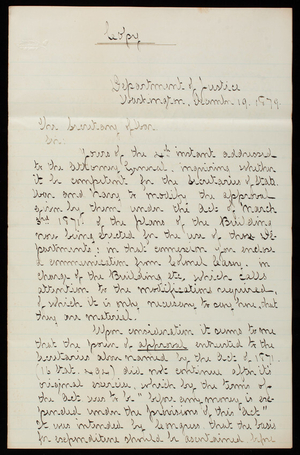 Copy
Department of Justice
Washington, March 19, 1879.
The Secretary of War
Sir:
Yours of the 4th instant addressed
to the Attorney General, inquiring whether
it be competent for the Secretaries of State,
War and Navy to modify the approval
given by them, under the Act of March
3rd 1871, of the plans of the Building
now being erected for the use of those De-
partments; in that connexion you enclose
a communication from Colonel Casey, in
charge of the Building etc, which calls
attention to the modification required,
of which it is only necessary to say here, that
they are material.
Upon consideration it seems to me
that the power of approval entrusted to the
Secretaries above named by the Act of 1871,
(16 Stat. 494), did not continue after its
original exercise, which by the terms of
the Act was to be "before any money is ex-
pended under the provisions of this Act"
It was intended by Congress, that the basis
for expenditure should be ascertained before